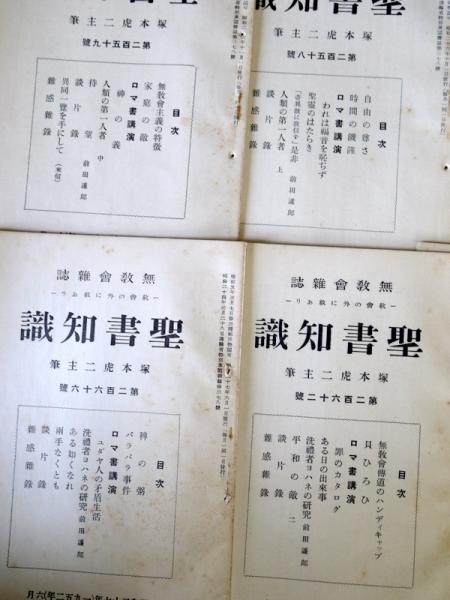 聖書知識
塚本虎二主筆
第二百五十九號
目次
無教會主義の特徴
家庭の敵
ロマ書講演
神の義
人類の第一人者 中 前田護郎
待望
談片錄
異同一覽を手にして(來信)
雜感雜錄
聖書知識
塚本虎二主筆
第二百五十八號
目次
自由の尊さ
時間の饑饉
ロマ書講演
われは福音を恥ぢず
聖靈のはたらき
人類の第一人者 上 前田護郎
談片錄
雜感雜錄
無教會雜誌
―教會の外に救あり―
聖書知識
塚本虎二主筆
第二百六十六號
目次
稗の粥
バラバラ事件
ロマ書講演
ユダヤ人の矛盾生活
洗禮者ヨハネの研究 前田護郎
ある如くなれ
兩手なくとも
談片錄
雜感雜錄
無教會雜誌
―教會の外に救あり―
聖書知識
塚本虎二主筆
第二百六十二號
目次
無教會傳道のハンディキャップ
貝ひろひ
ロマ書講演
罪のカタログ
ある日の出來事
洗禮者ヨハネの研究 前田護郎
平和の敵 二
談片錄
雜感雜錄